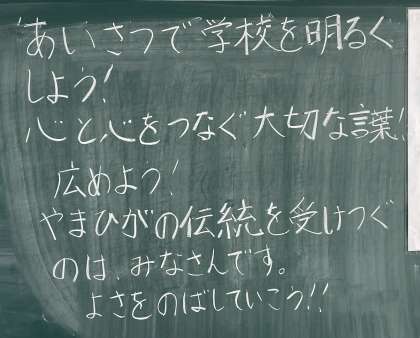 あいさつで学校を明るく
しよう!
心と心をつなぐ大切な言葉!
広めよう!
やまびがの伝統を受けつぐ
のは、みなさんです。
よさをのばしていこう!!